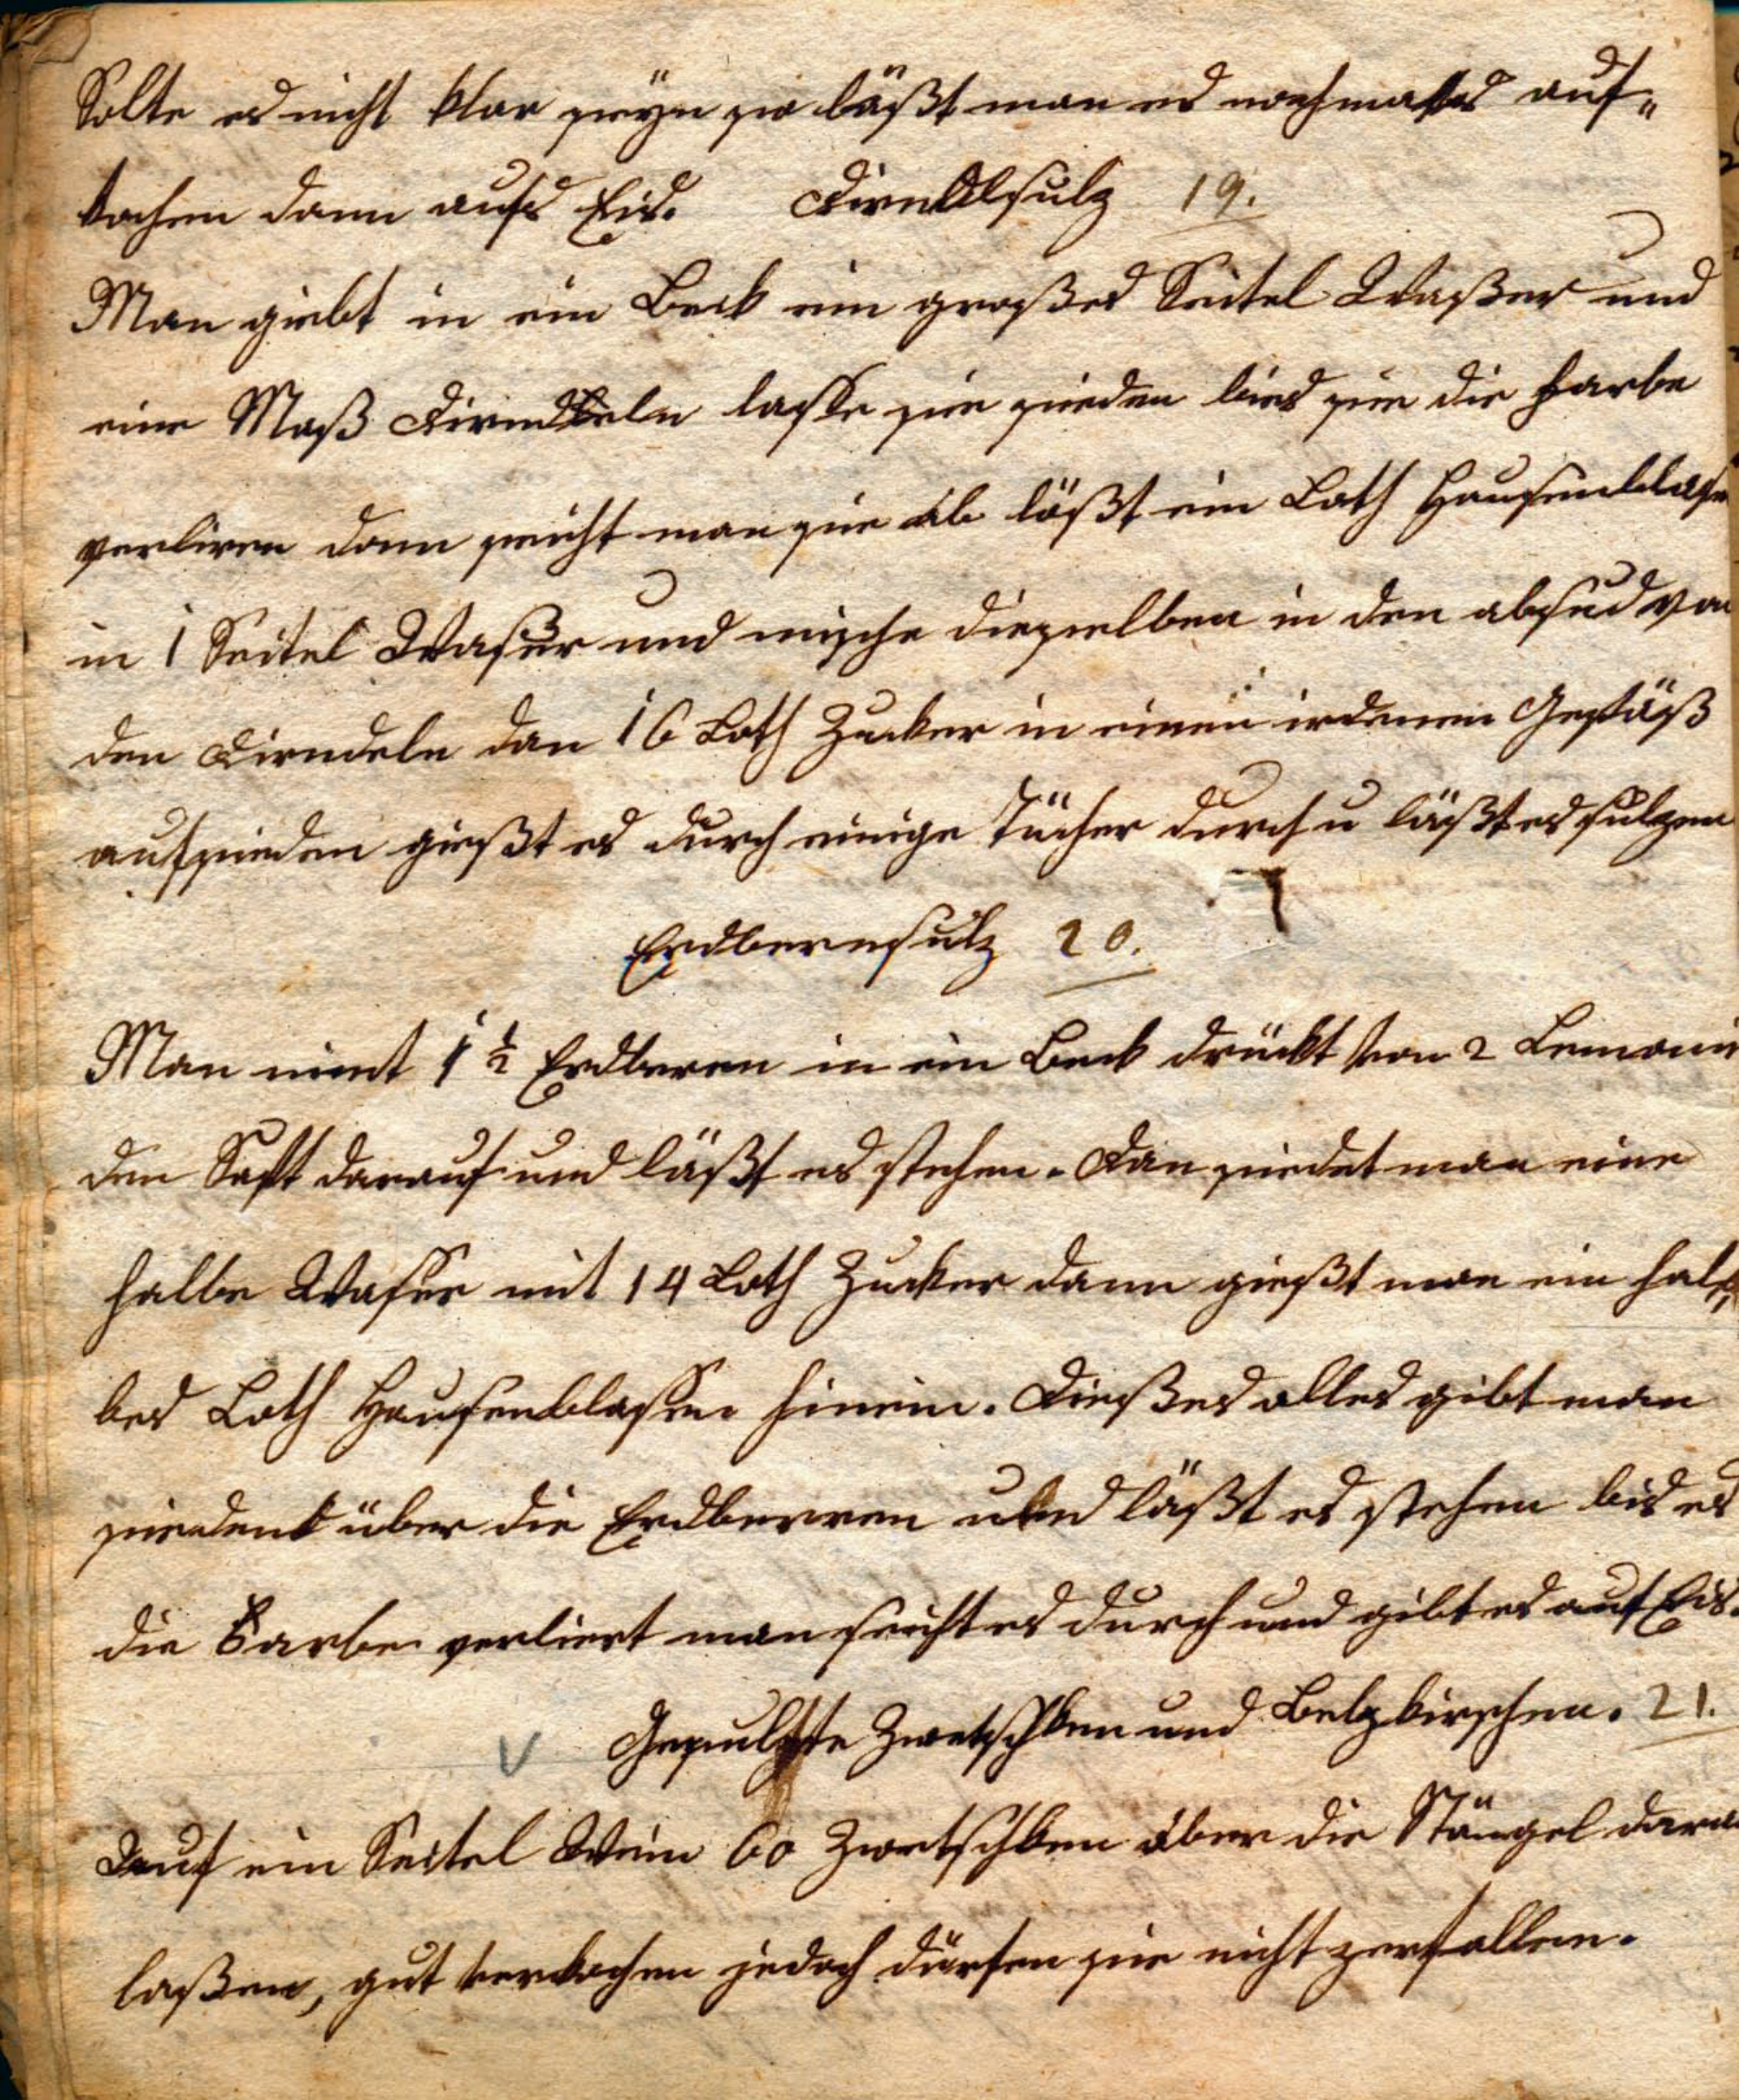 Solte es nicht klar seÿn so läßt man es nochmalls auf„
kochen dann aufs Eis. Dirndlsulz 19.
Man giebt in ein Beck ein großes Seitel Waßer und
eine Maß Dirndeln lasse sie sieden bies sie die Farbe
verliren dann seicht man sie ab lößt ein Loth Hausenblase
in 1 Seitel Wasser und mische diesselben in den absud von
den Dirndeln dan 16 Loth Zucker in einen irdenen Gefäß
aufsieden gießt es durch einige Tücher durch u läßt es sulzen
Erdbernsulz 20.
Man nimt 1 ½ Erdberen in ein Beck drückt von 2 Lemonie
den Saft darauf und läßt es stehen. Dan siedet man eine
halbe Wasser mit 14 Loth Zucker dann gießt man ein hal„
bes Loth Hausenblassen hinein. Dießes alles gibt man
siedend über die Erdberren und läßt es stehen bis es
die Farbe verliert man seicht es durch und gibt es auf Eis.
Gesulzte Zwetschken und Belzkirschen. 21.
Auf ein Seitel Wein 60 Zwetschken aber die Stängel daran
laßen, gut verkochen jedoch dürfen sie nicht zerfallen.